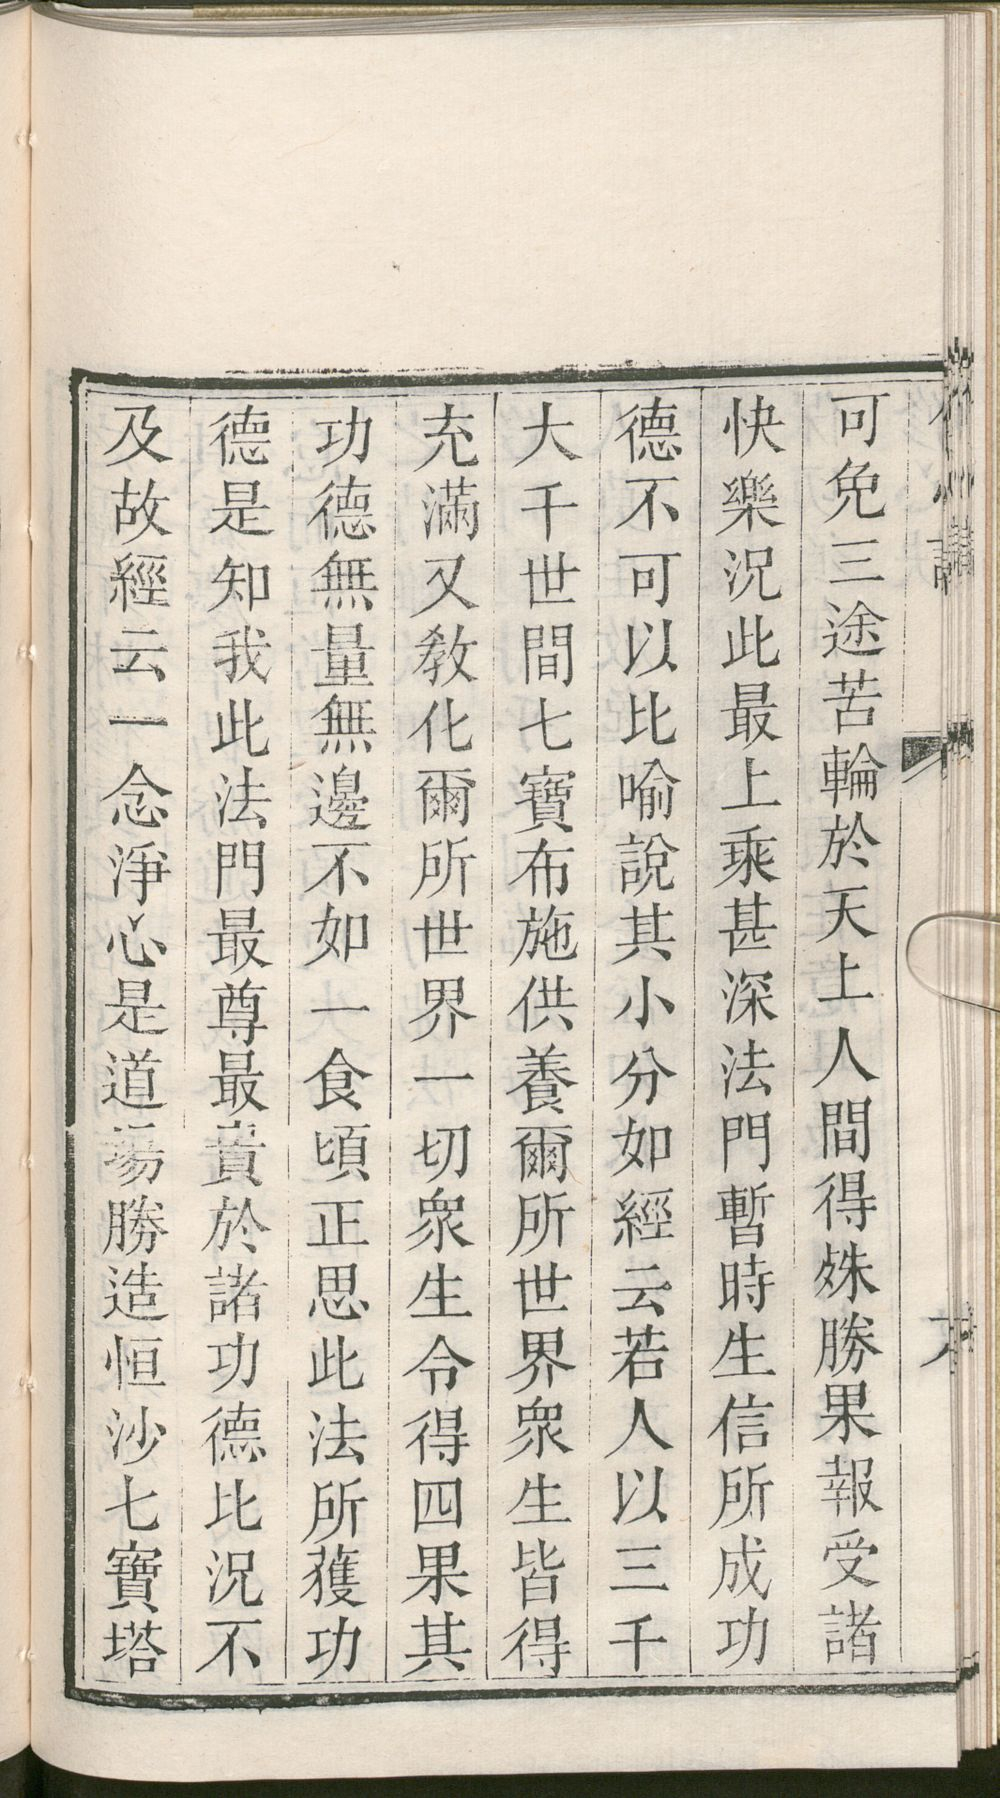 可免三途苦輪於天上人間得殊勝果報受諸
快樂況此最上乘甚深法門暫時生信所成功
德不可以比喻說其小分如經云若人以三千
大千世間七寶布施供養爾所世界衆生皆得
充滿又教化爾所世界一切衆生令得四果其
功德無量無邊不如一食頃正思此法所獲功
德是知我此法門最尊最貴於諸功德比況不
及故經云一念淨心是道場勝造恒沙七寶塔